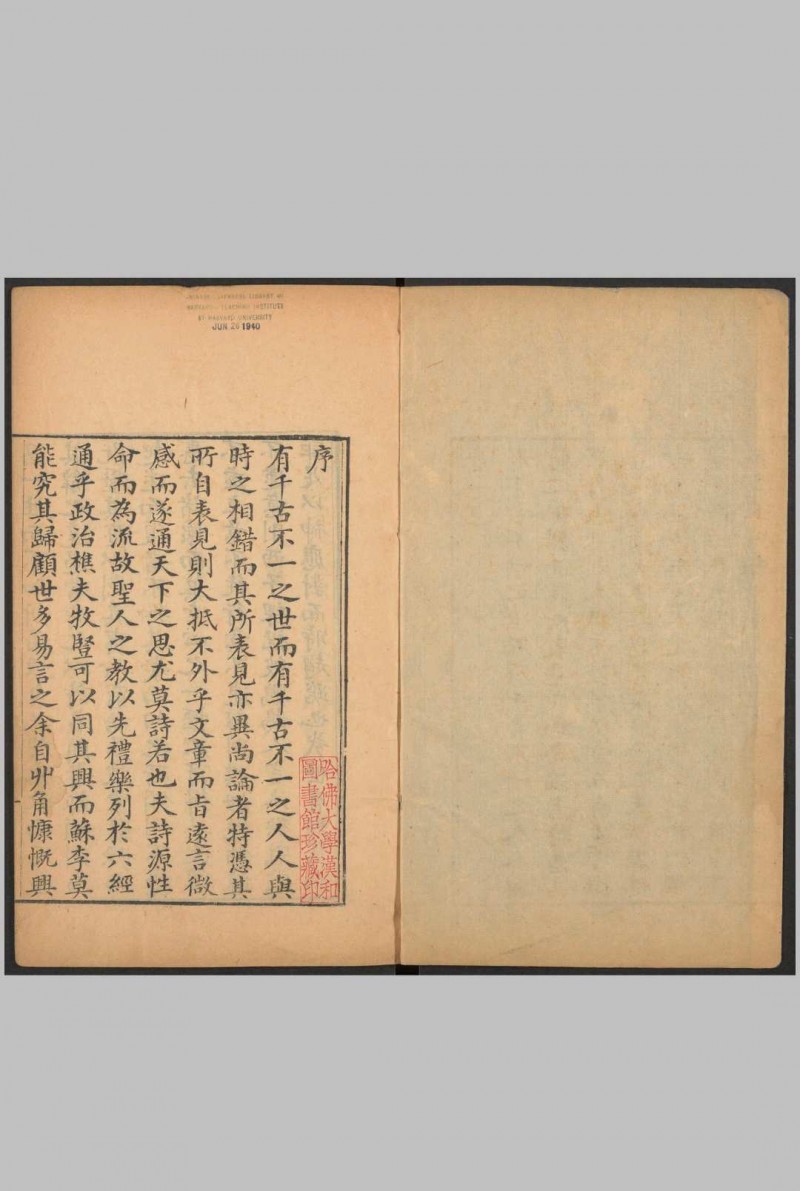 CHINESE-JAPANESE LIBRARY OF
HARVARD-YENCHING INSTITUTE
AT HARVARD UNIVERSITY
JUN 26 1940
序
有千古不一之世而有千古不一之人人與
時之相錯而其所表見亦異尚論者特憑其
所自表見則大抵不外乎文章而旨遠言微
感而遂通天下之思尤莫詩若也夫詩源性
命而為流故聖人之教以先禮樂列於六經
通乎政治樵夫牧豎可以同其興而蘇李莫
能究其歸顧世多易言之余自丱角慷慨興
哈佛大學漢和
圖書館珍藏印